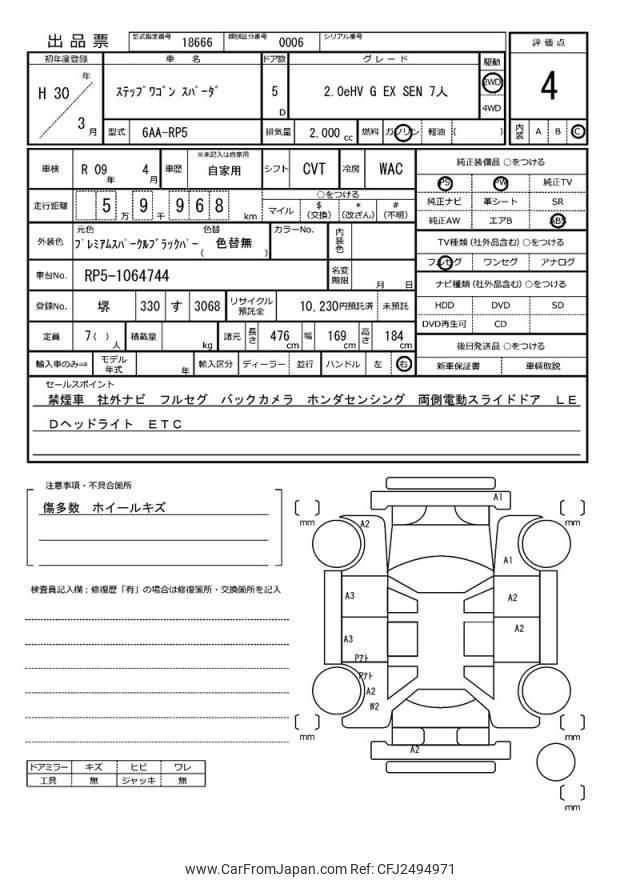 出品票 型式指定番号 18666 類別区分番号 0006 シリアル番号
初年度登録 車 名 ドア数 グレード 駆動 評価点
H 30 年 3 月 ステップワゴン スパーダ 5 D 2.0eHV G EX SEN 7人 2WD 4WD 4
型式 6AA-RP5 排気量 2,000 cc 燃料 ガソリン 軽油 ( ) 内装 A B C
車検 R 09 年 4 月 車歴 ※未記入は自家用 自家用 シフト CVT 冷房 WAC 純正装備品 ○をつける
PS PW 純正TV
走行距離 5 万 9 千 9 6 8 km ○をつける 純正ナビ 革シート SR
マイル $ (交換) * (改ざん) # (不明) 純正AW エアB ABS
外装色 元色 プレミアムスパークルブラックパー 色替 ( 色替無 ) カラーNo. 内装色 TV種類 (社外品含む) ○をつける
フルセグ ワンセグ アナログ
車台No. RP5-1064744 名変期限 月 日 ナビ種類 (社外品含む) ○をつける
登録No. 堺 330 す 3068 リサイクル預託金 10,230円預託済 未預託 HDD DVD SD
DVD再生可 CD
定員 7( ) 人 積載量 kg 諸元 長さ 476 cm 幅 169 cm 高さ 184 cm 後日発送品 ○をつける
輸入車のみ⇒ モデル年式 年 輸入区分 ディーラー 並行 ハンドル 左 右 新車保証書 車輌取説
セールスポイント
禁煙車 社外ナビ フルセグ バックカメラ ホンダセンシング 両側電動スライドドア LE
Dヘッドライト ETC
注意事項・不具合箇所
傷多数 ホイールキズ
検査員記入欄：修復歴「有」の場合は修復箇所・交換箇所を記入
ドアミラー キズ ヒビ ワレ
工具 無 ジャッキ 無
A1
mm mm
A2
A1
A3 A2
A3 A2
Pアト
Pアト
A2
W2
mm mm
A2
mm
www.CarFromJapan.com Ref: CFJ2494971